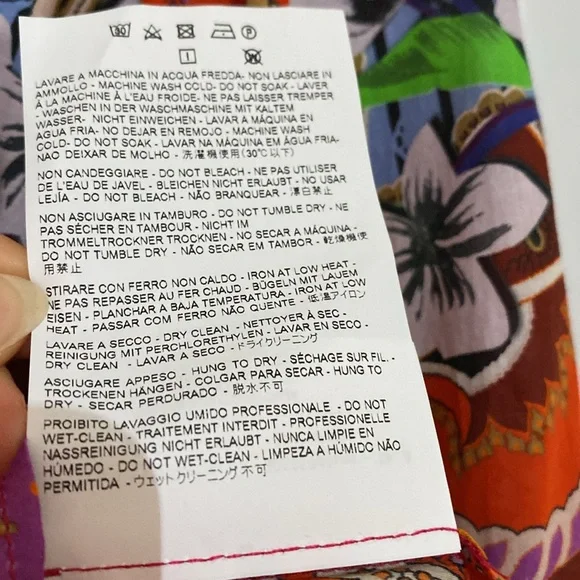 30 P
LAVARE A MACCHINA IN ACQUA FREDDA- NON LASCIARE IN
AMMOLLO - MACHINE WASH COLD- DO NOT SOAK - LAVER
À LA MACHINE À L'EAU FROIDE- NE PAS LAISSER TREMPER
- WASCHEN IN DER WASCHMASCHINE MIT KALTEM
WASSER- NICHT EINWEICHEN - LAVAR A MÁQUINA EN
AGUA FRIA- NO DEJAR EN REMOJO - MACHINE WASH
COLD- DO NOT SOAK - LAVAR A MÁQUINA EM ÁGUA FRIA-
NAO DEIXAR DE MOLHO - 洗濯機使用(30℃以下)
NON CANDEGGIARE - DO NOT BLEACH - NE PAS UTILISER
DE L'EAU DE JAVEL - BLEICHEN NICHT ERLAUBT - NO USAR
LEJÍA - DO NOT BLEACH - NÃO BRANQUEAR - 漂白禁止
NON ASCIUGARE IN TAMBURO - DO NOT TUMBLE DRY - NE
PAS SÉCHER EN TAMBOUR - NICHT IM
TROMMELTROCKNER TROCKNEN - NO SECAR A MÁQUINA -
DO NOT TUMBLE DRY - NÃO SECAR EM TAMBOR - 乾燥機使
用禁止
STIRARE CON FERRO NON CALDO - IRON AT LOW HEAT -
NE PAS REPASSER AU FER CHAUD - BÜGELN MIT LAUEM
EISEN - PLANCHAR A BAJA TEMPERATURA - IRON AT LOW
HEAT - PASSAR COM FERRO NÃO QUENTE - 低温アイロン
LAVARE A SECCO - DRY CLEAN - NETTOYER À SEC -
REINIGUNG MIT PERCHLORETHYLEN - LAVAR EN SECO -
DRY CLEAN - LAVAR A SECO - ドライクリーニング
ASCIUGARE APPESO - HUNG TO DRY - SÉCHAGE SUR FIL -
TROCKENEN HÄNGEN - COLGAR PARA SECAR - HUNG TO
DRY - SECAR PERDURADO - 脱水不可
PROIBITO LAVAGGIO UMIDO PROFESSIONALE - DO NOT
WET-CLEAN - TRAITEMENT INTERDIT - PROFESSIONELLE
NASSREINIGUNG NICHT ERLAUBT - NUNCA LIMPIE EN
HÚMEDO - DO NOT WET-CLEAN - LIMPEZA A HÚMIDO NÃO
PERMITIDA - ウェットクリーニング不可